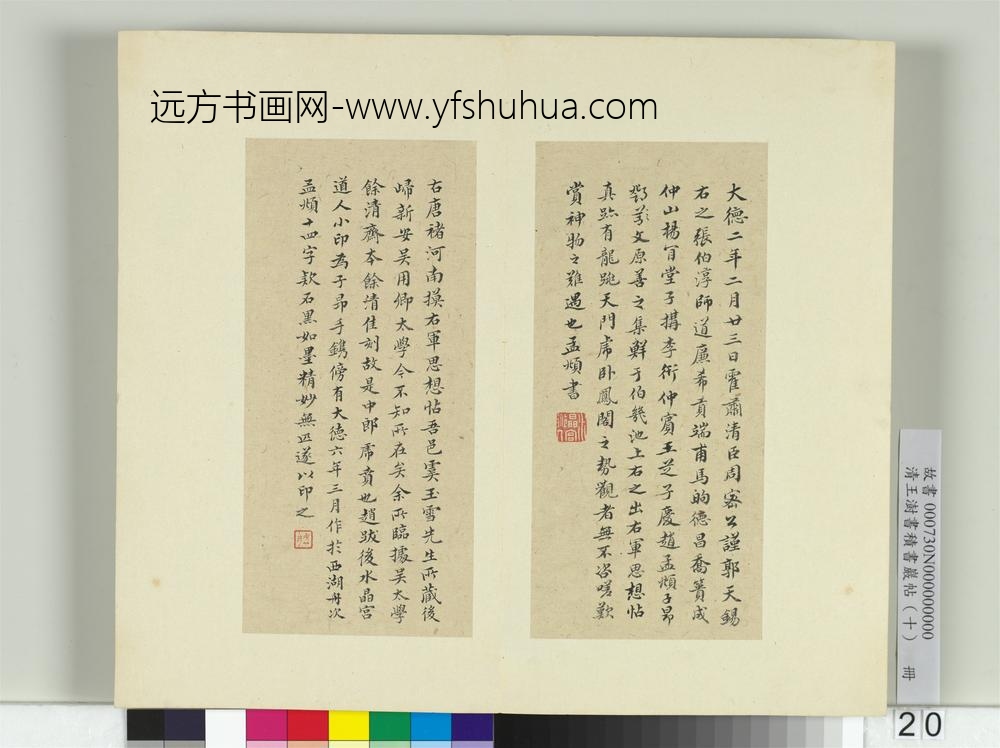 远方书画网-www.yfshuhua.com
大德二年二月廿三日霍肅清臣周密公謹郭天錫
右之張伯淳師道廉希貢端甫馬昫德昌喬簣成
仲山楊肎堂子構李衎仲賓王芝子慶趙孟頫子昂
鄧文原善之集鮮于伯幾池上右之出右軍思想帖
真跡有龍跳天門虎卧鳳閣之勢觀者無不咨嗟歎
賞神物之難遇也孟頫書
右唐褚河南摸右軍思想帖吾邑虞玉雪先生所藏後
歸新安吴用卿太學今不知所在矣余所臨據吴太學
餘清齋本餘清佳刻故是中郎虎賁也趙跋後水晶宫
道人小印為子昂手鐫傍有大德六年三月作於西湖舟次
孟頫十四字款石黑如墨精妙無匹遂以印之
故書000730N000000000
清王澍書積書巖帖（十） 冊
20